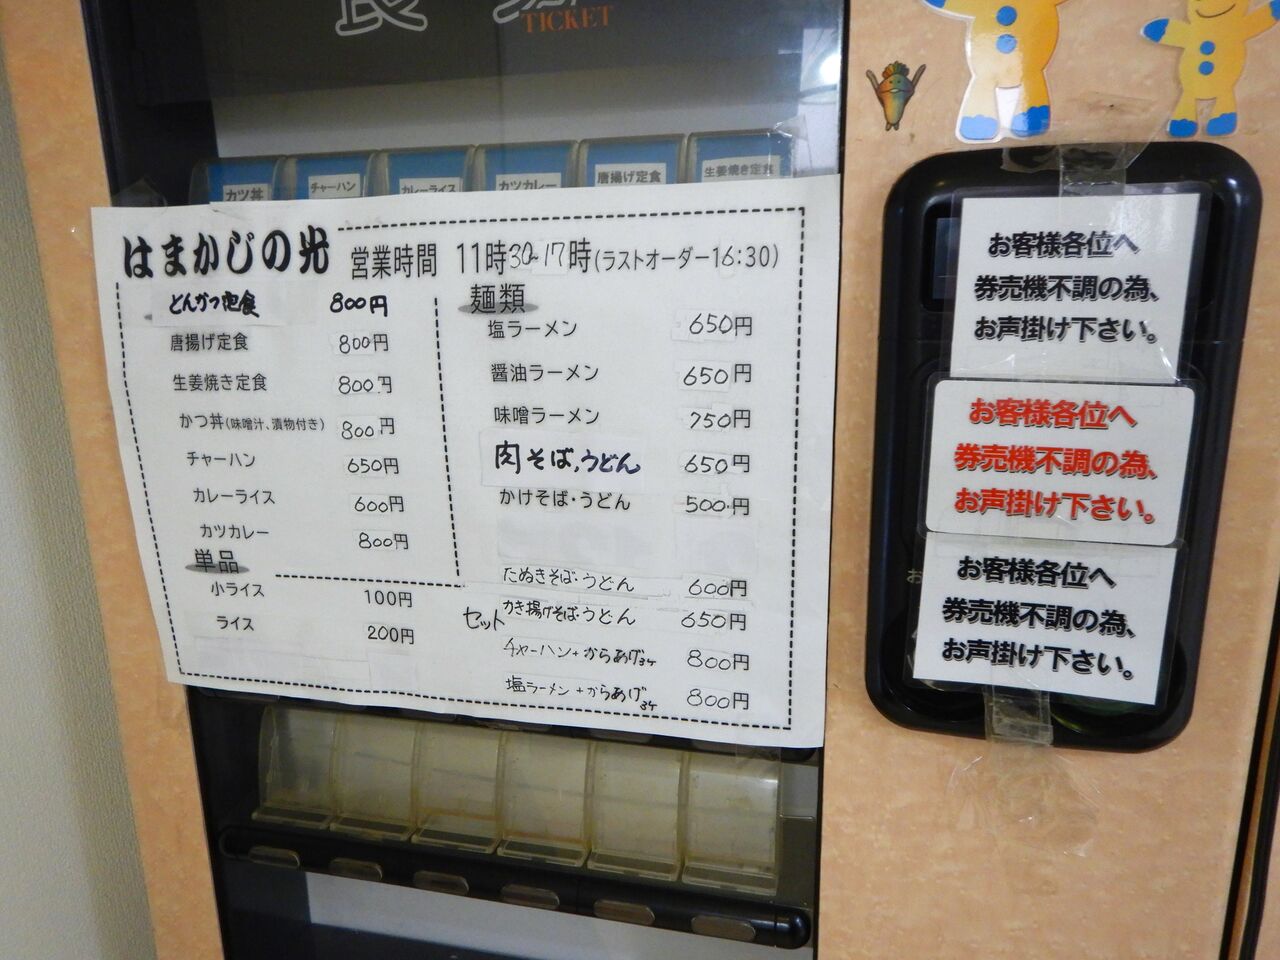 食
TICKET
カツ丼
チャーハン
カレーライス
カツカレー
唐揚げ定食
生姜焼き定食
はまかじの光 営業時間 11時30~17時(ラストオーダー16:30)
とんかつ定食 800円
唐揚げ定食 800円
生姜焼き定食 800円
かつ丼(味噌汁、漬物付き) 800円
チャーハン 650円
カレーライス 600円
カツカレー 800円
単品
小ライス 100円
ライス 200円
麺類
塩ラーメン 650円
醤油ラーメン 650円
味噌ラーメン 750円
肉そば,うどん 650円
かけそば・うどん 500円
たぬきそば・うどん 600円
かき揚げそば・うどん 650円
セット
チャーハン+からあげ3ケ 800円
塩ラーメン+からあげ3ケ 800円
お客様各位へ
券売機不調の為、
お声掛け下さい。
お客様各位へ
券売機不調の為、
お声掛け下さい。
お客様各位へ
券売機不調の為、
お声掛け下さい。